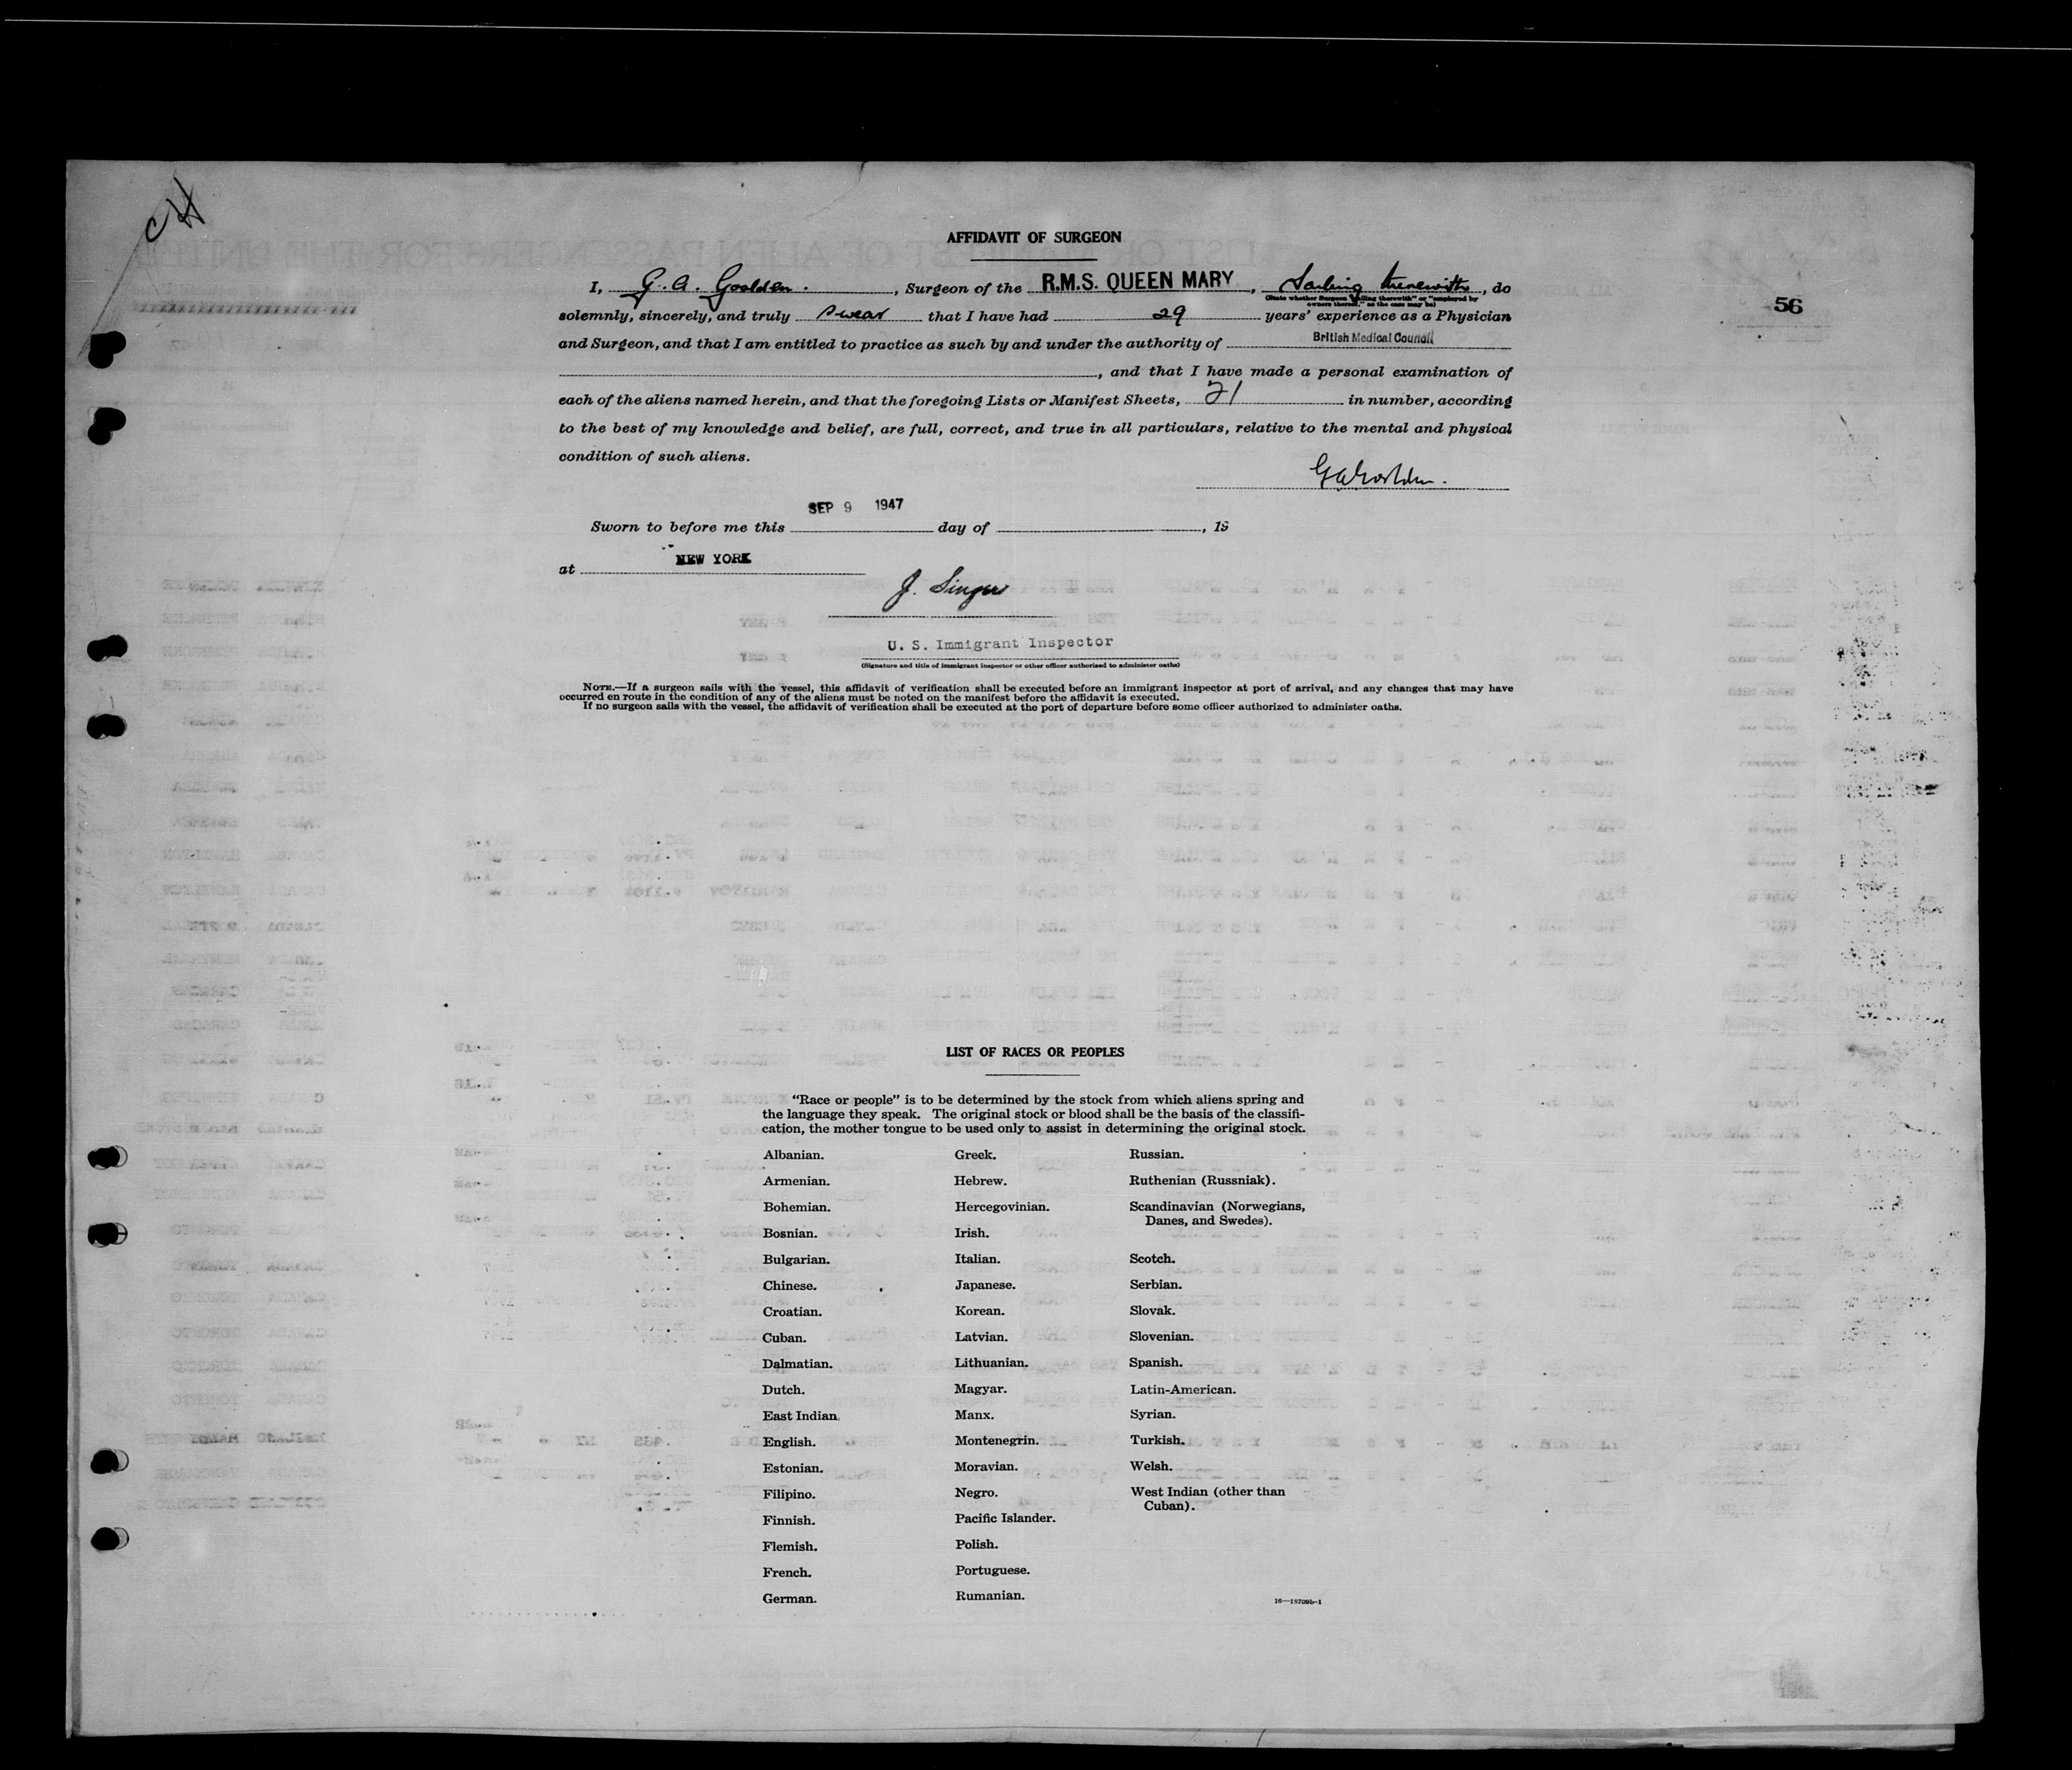 CH
AFFIDAVIT OF SURGEON
56
I, G. A. Goolden. , Surgeon of the R.M.S. QUEEN MARY , Sailing therewith , do
(State whether Surgeon "sailing therewith" or "employed by
owners thereof," as the case may be)
solemnly, sincerely, and truly swear that I have had 29 years' experience as a Physician
and Surgeon, and that I am entitled to practice as such by and under the authority of British Medical Council
, and that I have made a personal examination of
each of the aliens named herein, and that the foregoing Lists or Manifest Sheets, 21 in number, according
to the best of my knowledge and belief, are full, correct, and true in all particulars, relative to the mental and physical
condition of such aliens.
G A Goolden.
SEP 9 1947
Sworn to before me this day of , 19
at NEW YORK
J. Singer
U. S. Immigrant Inspector
(Signature and title of immigrant inspector or other officer authorized to administer oaths)
NOTE.—If a surgeon sails with the vessel, this affidavit of verification shall be executed before an immigrant inspector at port of arrival, and any changes that may have
occurred en route in the condition of any of the aliens must be noted on the manifest before the affidavit is executed.
If no surgeon sails with the vessel, the affidavit of verification shall be executed at the port of departure before some officer authorized to administer oaths.
LIST OF RACES OR PEOPLES
"Race or people" is to be determined by the stock from which aliens spring and
the language they speak. The original stock or blood shall be the basis of the classifi-
cation, the mother tongue to be used only to assist in determining the original stock.
Albanian.
Armenian.
Bohemian.
Bosnian.
Bulgarian.
Chinese.
Croatian.
Cuban.
Dalmatian.
Dutch.
East Indian.
English.
Estonian.
Filipino.
Finnish.
Flemish.
French.
German.
Greek.
Hebrew.
Hercegovinian.
Irish.
Italian.
Japanese.
Korean.
Latvian.
Lithuanian.
Magyar.
Manx.
Montenegrin.
Moravian.
Negro.
Pacific Islander.
Polish.
Portuguese.
Rumanian.
Russian.
Ruthenian (Russniak).
Scandinavian (Norwegians,
Danes, and Swedes).
Scotch.
Serbian.
Slovak.
Slovenian.
Spanish.
Latin-American.
Syrian.
Turkish.
Welsh.
West Indian (other than
Cuban).
16—18709b-1